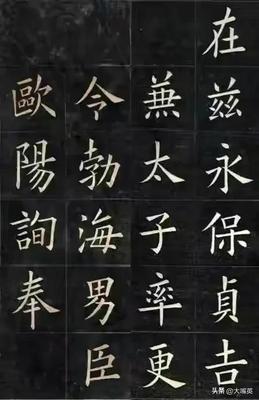 在茲永保貞吉
兼太子率更
令勃海男臣
歐陽詢奉
头条 @大嘴英